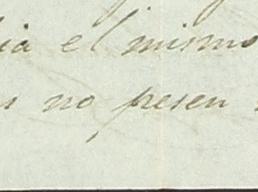 el mismo
no presen